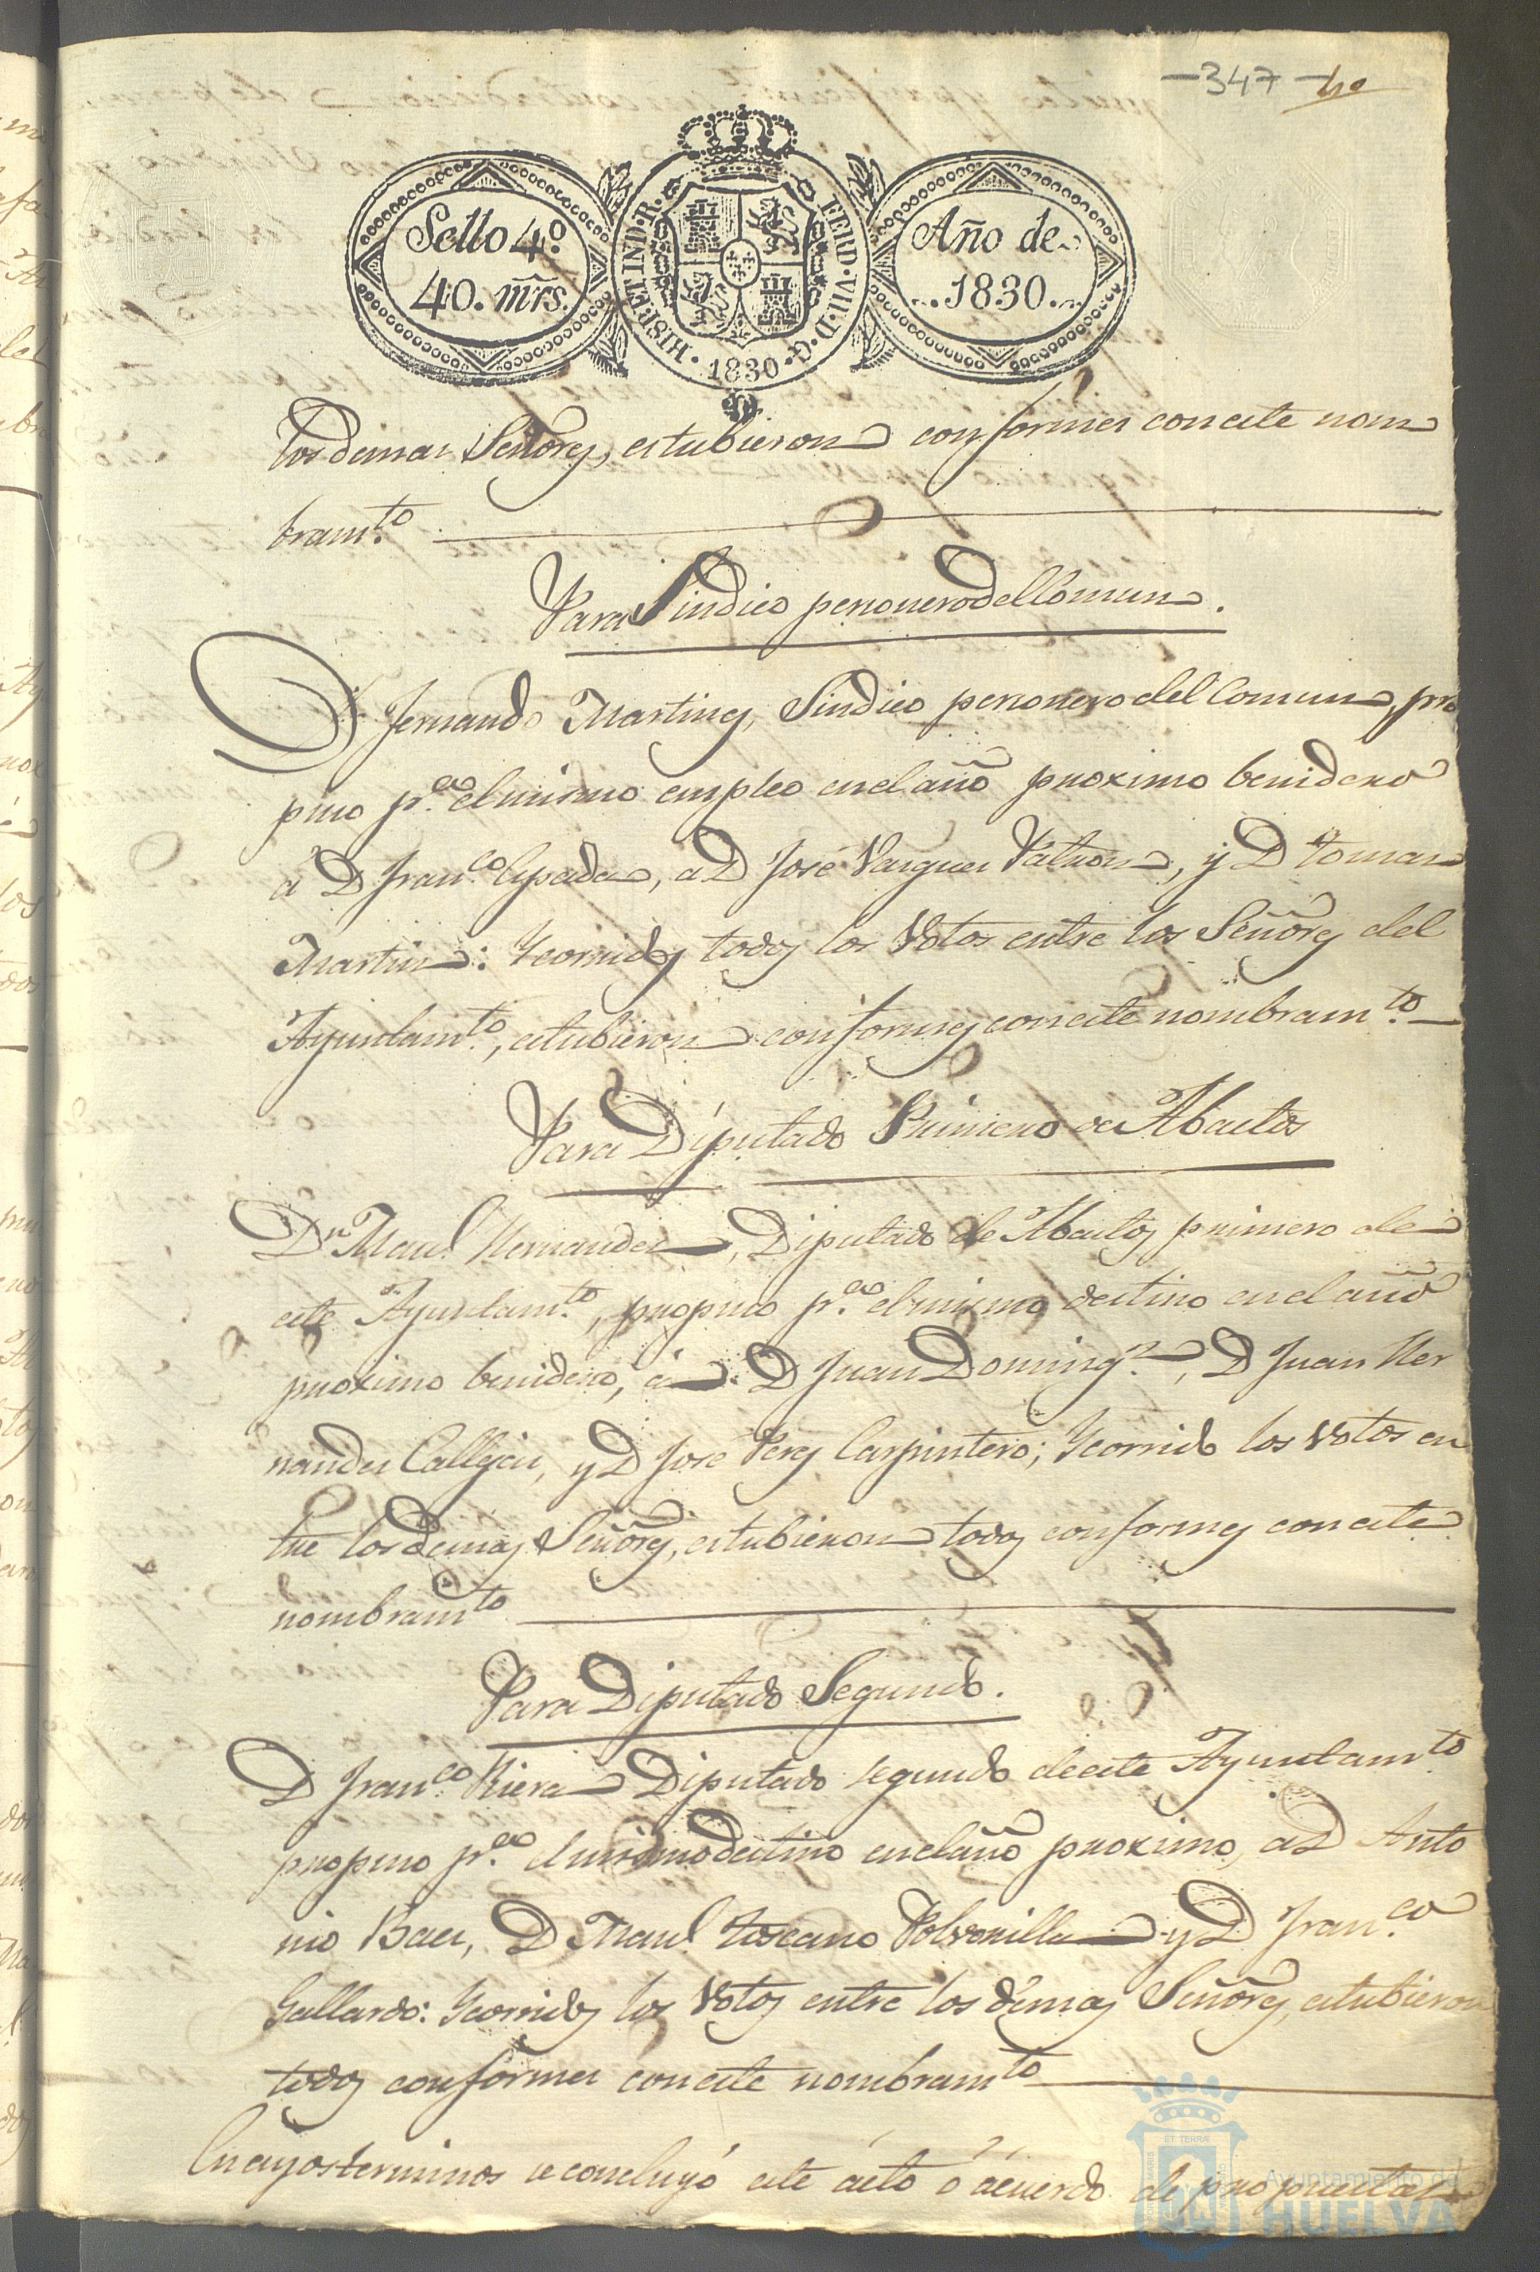 -347-
40
Sello 4º
40. mrs.
HISP. ET IND. R.
FERD. VII. D. G.
1830
Año de
1830.
los demas Señores, estubieron conformes con este nom
bramto.
Para Sindico personero del Comun.
D. Fernando Martinez, Sindico personero del Comun, pro
puso pa. el mismo empleo en el año proximo benidero
á D Franco. Cepeda, a D José Vargues Patron, y D Tomas
Martin: Y corridos todos los Votos entre los Señores del
Ayuntamto., estubieron conformes con este nombramto.
Para Diputado Primero de Abastos
Dn. Manl. Hernandez, Diputado de Abastos primero de
este Ayuntamto., propuso pa. el mismo destino en el año
proximo benidero, á D Juan Domingz., D Juan Her
nandez Calleja, y D José Perez Carpintero; Y corrido los Votos en
tre los demas Señores, estubieron todos conformes con este
nombramto
Para Diputado Segundo.
D Franco. Riera Diputado segundo de este Ayuntamto.
propuso pa. el mismo destino en el año proximo, a D Anto
nio Baez, D Manl. Toscano Polvorilla y D Franco.
Gallardo: Y corridos los Votos entre los demas Señores, estubieron
todos conformes con este nombramto
En cuyos terminos se concluyó este acto ó acuerdo de propuestas
Ayuntamiento de
HUELVA